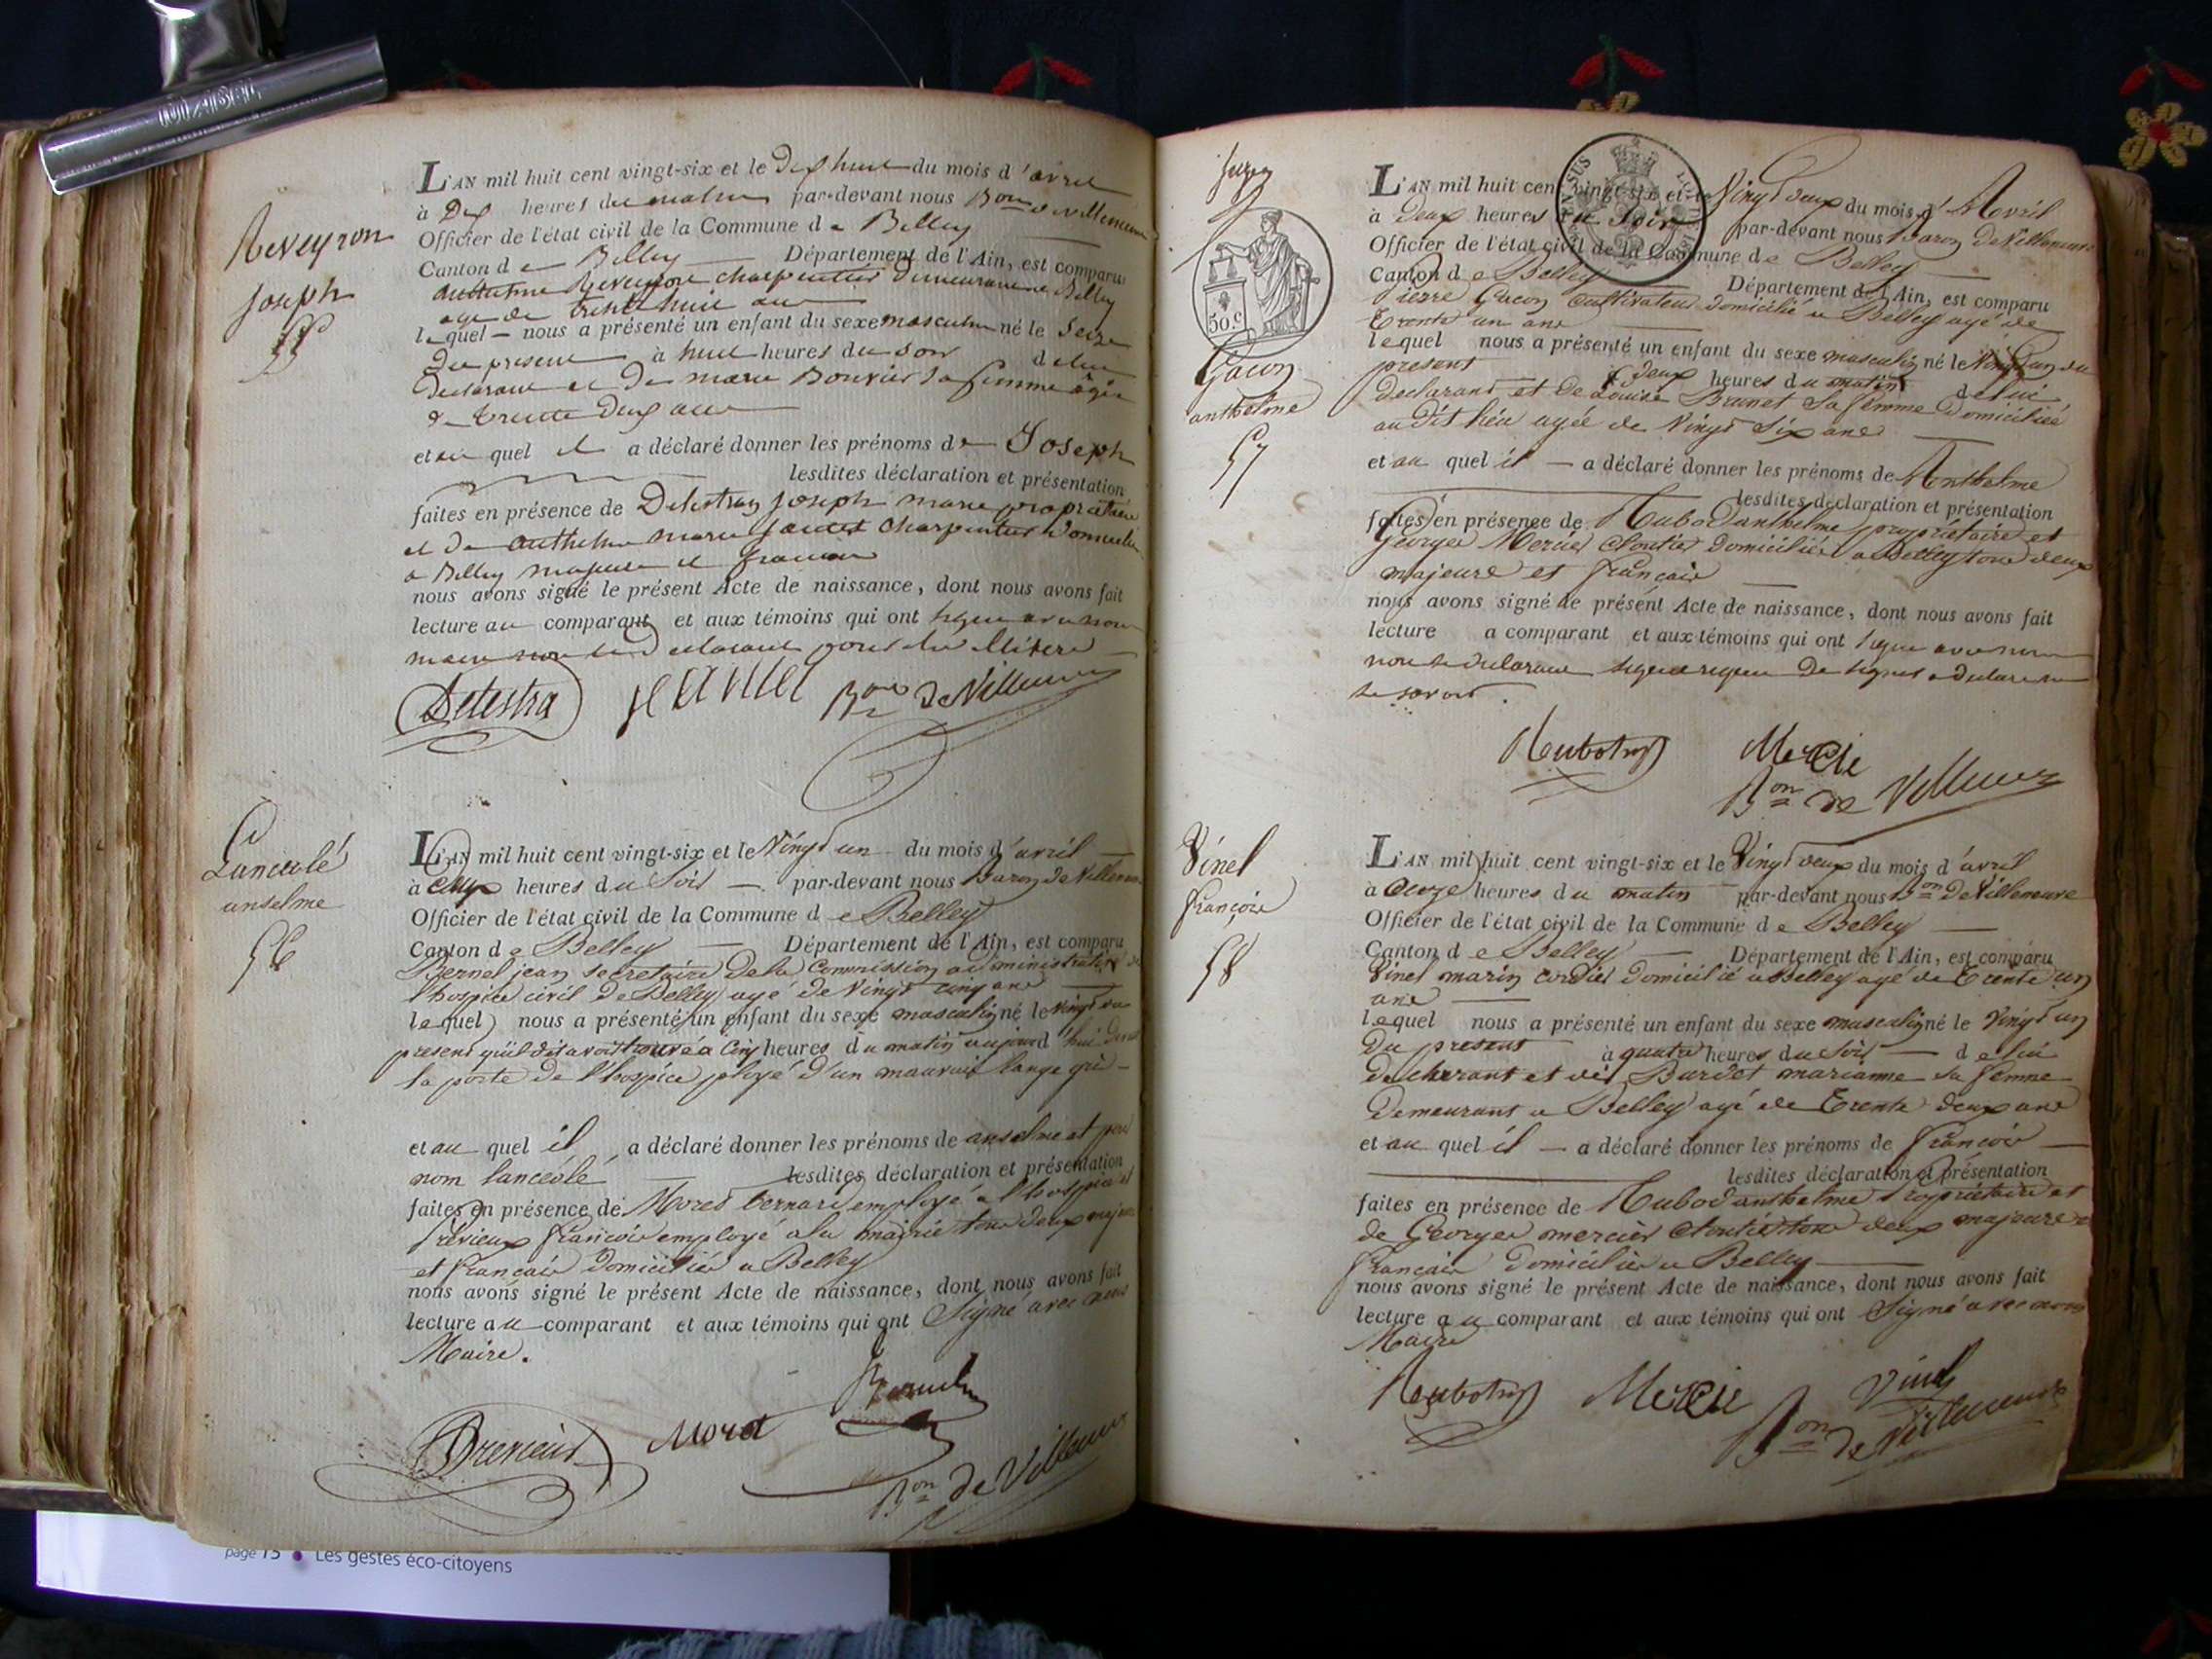 Reveyron
Joseph
55
L'AN mil huit cent vingt-six et le Dix huit du mois d'avril
à Dix heures du matin par-devant nous Bon de villeneuve
Officier de l'état civil de la Commune de Belley
Canton de Belley Département de l'Ain, est comparu
Reveyron charpentier demeurant a Belley
age de trente huit ans
lequel nous a présenté un enfant du sexe masculin né le Seize
Du present à huit heures du soir de lui
Declarant et De marie Bouvier sa femme agée
de trente Deux ans
et au quel il a déclaré donner les prénoms de Joseph
lesdites déclaration et présentation
faites en présence de Delestraz Joseph marie propriétaire
et De anthelme marie charpentier Domicilié
a Belley majeurs et francais
nous avons signé le présent Acte de naissance, dont nous avons fait
lecture au comparant et aux témoins qui ont signé avec nous
maire non le Declarant pour être illitere
Delestra Bon De Villeneuve
Lanceolé
anselme
56
L'AN mil huit cent vingt-six et le Vingt un du mois d'avril
à heures du Soir par-devant nous Baron de Villeneuve
Officier de l'état civil de la Commune de Belley
Canton de Belley Département de l'Ain, est comparu
Bernel jean secretaire De la Commission administrative de
l'hospice civil De Belley agé de Vingt cinq ans
lequel nous a présenté un enfant du sexe masculin né le vingt un
present qu'il dit avoir trouvé à Cinq heures du matin aujourd'hui
la porte de l'hospice ployé d'un mauvais lange gris
et au quel il a déclaré donner les prénoms de anselme et pour
nom lanceolé lesdites déclaration et présentation
faites en présence de Moret bernard employé a l'hospice et
Prévieux françois employé a la mairie tous deux majeurs
et français Domiciliés a Belley
nous avons signé le présent Acte de naissance, dont nous avons fait
lecture au comparant et aux témoins qui ont Signé avec nous
Maire.
Bernel
Previeux Moret
Bon de Villeneuve
50.c
Gacon
anthelme
57
L'AN mil huit cent vingt-six et le Vingt deux du mois d'Avril
à Deux heures du Soir par-devant nous Baron De Villeneuve
Officier de l'état civil de la Commune de Belley
Canton de Belley Département de l'Ain, est comparu
Pierre Gacon Cultivateur Domicilié a Belley agé de
Trente un ans
lequel nous a présenté un enfant du sexe masculin né le Vingt un du
present à Deux heures du matin de lui
declarant et De Louise Brunet Sa femme Domiciliée
au Dit lieu agée de Vingt Six ans
et au quel il a déclaré donner les prénoms de Anthelme
lesdites déclaration et présentation
faites en présence de Rubod anthelme propriétaire et
Georges Mercier Cloutier Domiciliés a Belley tous deux
majeurs et français
nous avons signé le présent Acte de naissance, dont nous avons fait
lecture a comparant et aux témoins qui ont signé avec nous
non le declarant requis De signer a declaré ne
le savoir.
Mercie
Bon de Villeneuve
Vinel
François
58
L'AN mil huit cent vingt-six et le Vingt deux du mois d'avril
à Onze heures du matin par-devant nous Bon De Villeneuve
Officier de l'état civil de la Commune de Belley
Canton de Belley Département de l'Ain, est comparu
Vinel marin cordier Domicilié a Belley agé de Trente un
ans
lequel nous a présenté un enfant du sexe masculin né le Vingt un
Du present à quatre heures du Soir de lui
et de Burdet marianne sa femme
Demeurant a Belley agé de Trente deux ans
et au quel il a déclaré donner les prénoms de François
lesdites déclaration et présentation
faites en présence de Rubod anthelme Propriétaire et
de Georges mercier Cloutier tous deux majeurs
Français Domiciliés a Belley
nous avons signé le présent Acte de naissance, dont nous avons fait
lecture au comparant et aux témoins qui ont Signé avec nous
Maire
Mercie Vinel
Bon de Villeneuve
page 15 • Les gestes éco-citoyens